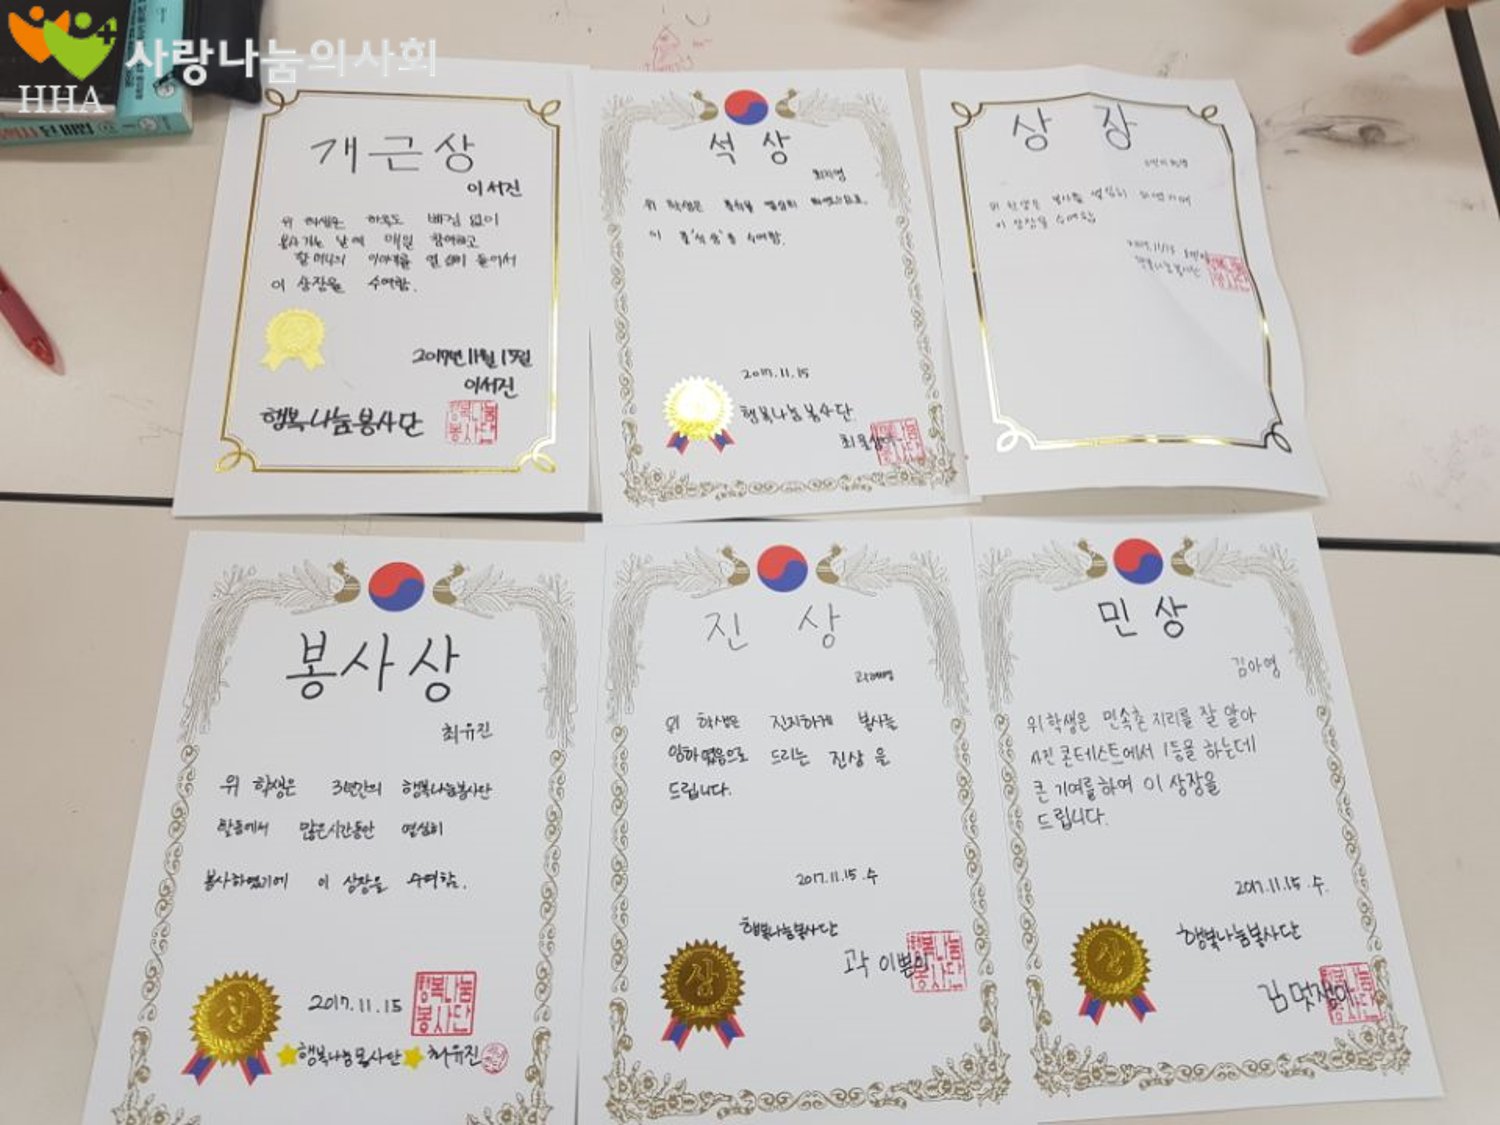 사랑나눔의사회
HHA
개근상
이서진
위 학생은 하루도 빠짐 없이
봉사가는 날에 매일 참여하고
할머니의 이야기를 열심히 들어서
이 상장을 수여함.
2017년 11월 15일
이서진
행복나눔봉사단
행복나눔
봉사단
석상
최지영
위 학생은 열심히 하였으므로
이 '석상'을 수여함.
2017.11.15
행복나눔봉사단
상장
위 학생은 봉사를 열심히
이 상장을 수여함
2017.11.15
행복나눔봉사단
봉사상
최유진
위 학생은 3년간의 행복나눔봉사단
활동에서 많은시간동안 열심히
봉사하였기에 이 상장을 수여함.
상
2017.11.15
행복나눔
봉사단
행복나눔봉사단 최유진
진상
위 학생은 진지하게 봉사를
임하였음으로 드리는 진상을
드립니다.
2017.11.15.수
행복나눔봉사단
상
곽이쁜이
행복나눔
봉사단
민상
김아영
위 학생은 민속촌 지리를 잘 알아
사진 콘테스트에서 1등을 하는데
큰 기여를 하여 이 상장을
드립니다.
2017.11.15.수.
행복나눔봉사단
상
김멋쟁이